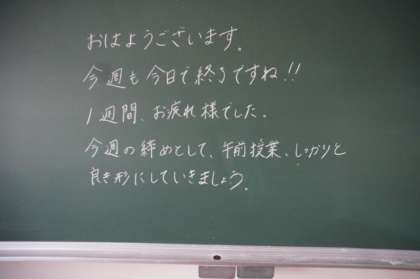 おはようございます。
今週も今日で終りですね!!
1週間、お疲れ様でした。
今週の締めとして、午前授業、しっかりと
良き形にしていきましょう。